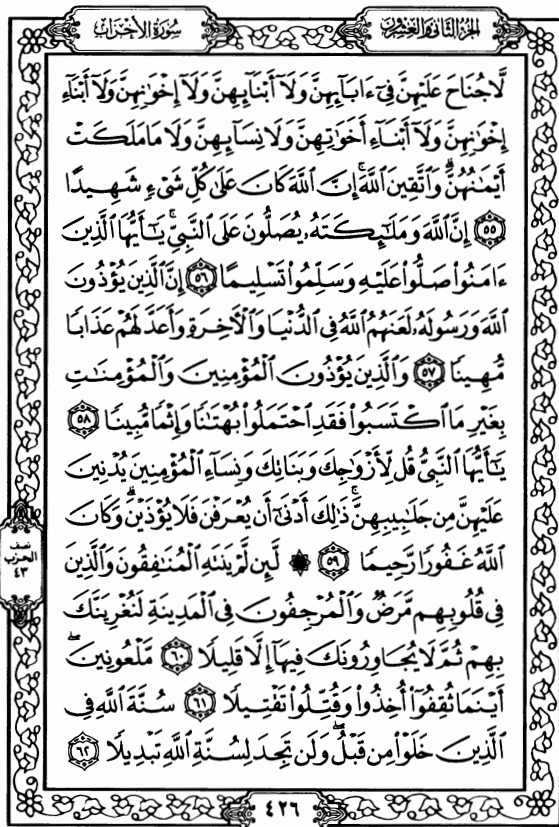 الجزء الثاني والعشرون
سورة الأحزاب
لَّا جُنَاحَ عَلَيْهِنَّ فِيٓ ءَابَآئِهِنَّ وَلَآ أَبْنَآئِهِنَّ وَلَآ إِخْوَٰنِهِنَّ وَلَآ أَبْنَآءِ
إِخْوَٰنِهِنَّ وَلَآ أَبْنَآءِ أَخَوَٰتِهِنَّ وَلَا نِسَآئِهِنَّ وَلَا مَا مَلَكَتْ
أَيْمَٰنُهُنَّۗ وَٱتَّقِينَ ٱللَّهَۚ إِنَّ ٱللَّهَ كَانَ عَلَىٰ كُلِّ شَيْءٖ شَهِيدًا
٥٥ إِنَّ ٱللَّهَ وَمَلَٰٓئِكَتَهُۥ يُصَلُّونَ عَلَى ٱلنَّبِيِّۚ يَٰٓأَيُّهَا ٱلَّذِينَ
ءَامَنُواْ صَلُّواْ عَلَيْهِ وَسَلِّمُواْ تَسْلِيمًا ٥٦ إِنَّ ٱلَّذِينَ يُؤْذُونَ
ٱللَّهَ وَرَسُولَهُۥ لَعَنَهُمُ ٱللَّهُ فِي ٱلدُّنْيَا وَٱلْأٓخِرَةِ وَأَعَدَّ لَهُمْ عَذَابٗا
مُّهِينٗا ٥٧ وَٱلَّذِينَ يُؤْذُونَ ٱلْمُؤْمِنِينَ وَٱلْمُؤْمِنَٰتِ
بِغَيْرِ مَا ٱكْتَسَبُواْ فَقَدِ ٱحْتَمَلُواْ بُهْتَٰنٗا وَإِثْمٗا مُّبِينٗا ٥٨
يَٰٓأَيُّهَا ٱلنَّبِيُّ قُل لِّأَزْوَٰجِكَ وَبَنَاتِكَ وَنِسَآءِ ٱلْمُؤْمِنِينَ يُدْنِينَ
عَلَيْهِنَّ مِن جَلَٰبِيبِهِنَّۚ ذَٰلِكَ أَدْنَىٰٓ أَن يُعْرَفْنَ فَلَا يُؤْذَيْنَۗ وَكَانَ
ٱللَّهُ غَفُورٗا رَّحِيمٗا ٥٩ ۞ لَّئِن لَّمْ يَنتَهِ ٱلْمُنَٰفِقُونَ وَٱلَّذِينَ
فِي قُلُوبِهِم مَّرَضٞ وَٱلْمُرْجِفُونَ فِي ٱلْمَدِينَةِ لَنُغْرِيَنَّكَ
بِهِمْ ثُمَّ لَا يُجَاوِرُونَكَ فِيهَآ إِلَّا قَلِيلٗا ٦٠ مَّلْعُونِينَۖ
أَيْنَمَا ثُقِفُوٓاْ أُخِذُواْ وَقُتِّلُواْ تَقْتِيلٗا ٦١ سُنَّةَ ٱللَّهِ فِي
ٱلَّذِينَ خَلَوْاْ مِن قَبْلُۖ وَلَن تَجِدَ لِسُنَّةِ ٱللَّهِ تَبْدِيلٗا ٦٢
نصف
الحزب
٤٣
٤٢٦